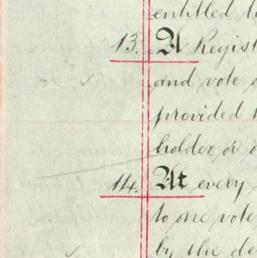 entitled
13. A Regist
and vote
provided
holder or
14. At every
to one vote
by the de